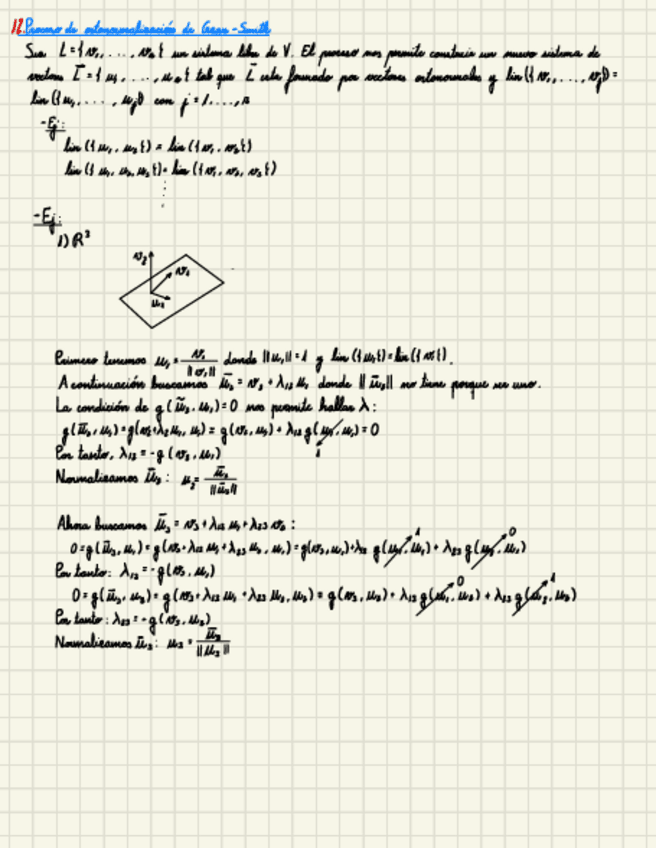 12. Proceso de ortonormalización de Gram-Smith
Sea L = {v₁, ..., vₙ} un sistema libre de V. El proceso nos permite construir un nuevo sistema de
vectores L̄ = {u₁, ..., uₙ} tal que L̄ esta formado por vectores ortonormales y lin({v₁, ..., vⱼ}) =
lin({u₁, ..., uⱼ}) con j = 1, ..., n
-Ej:
lin({u₁, u₂}) = lin({v₁, v₂})
lin({u₁, u₂, u₃}) = lin({v₁, v₂, v₃})
⋮
-Ej:
1) R³
v₂ v₁
u₁
Primero tenemos u₁ = v₁/||v₁|| donde ||u₁|| = 1 y lin({u₁}) = lin({v₁}).
A continuación buscamos ū₂ = v₂ + λ₁₂ u₁ donde ||ū₂|| no tiene porque ser uno.
La condición de g(ū₂, u₁) = 0 nos permite hallar λ:
g(ū₂, u₁) = g(v₂ + λ₁₂ u₁, u₁) = g(v₂, u₁) + λ₁₂ g(u₁, u₁) = 0
1
Por tanto, λ₁₂ = -g(v₂, u₁)
Normalizamos ū₂: u₂ = ū₂/||ū₂||
Ahora buscamos ū₃ = v₃ + λ₁₃ u₁ + λ₂₃ u₂:
1 0
0 = g(ū₃, u₁) = g(v₃ + λ₁₃ u₁ + λ₂₃ u₂, u₁) = g(v₃, u₁) + λ₁₃ g(u₁, u₁) + λ₂₃ g(u₂, u₁)
Por tanto: λ₁₃ = -g(v₃, u₁)
0 1
0 = g(ū₃, u₂) = g(v₃ + λ₁₃ u₁ + λ₂₃ u₂, u₂) = g(v₃, u₂) + λ₁₃ g(u₁, u₂) + λ₂₃ g(u₂, u₂)
Por tanto: λ₂₃ = -g(v₃, u₂)
Normalizamos ū₃: u₃ = ū₃/||ū₃||